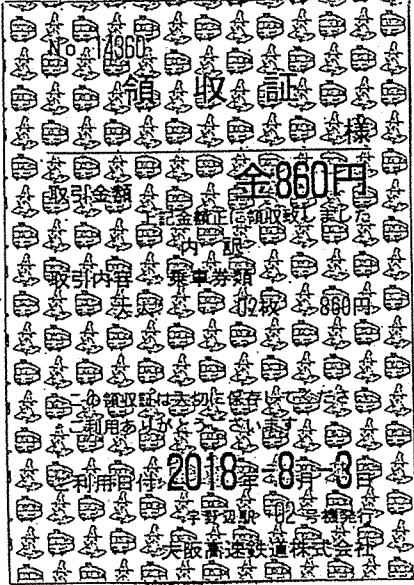 No 14360
領収証
様
取引金額 金860円
上記金額正に領収致しました
内訳
取引内容 乗車券類
大人 02枚 860円
この領収証は大切に保存してください
ご利用ありがとうございます
利用日付 2018年-8月-3日
宇野辺駅 02号機発行
大阪高速鉄道株式会社